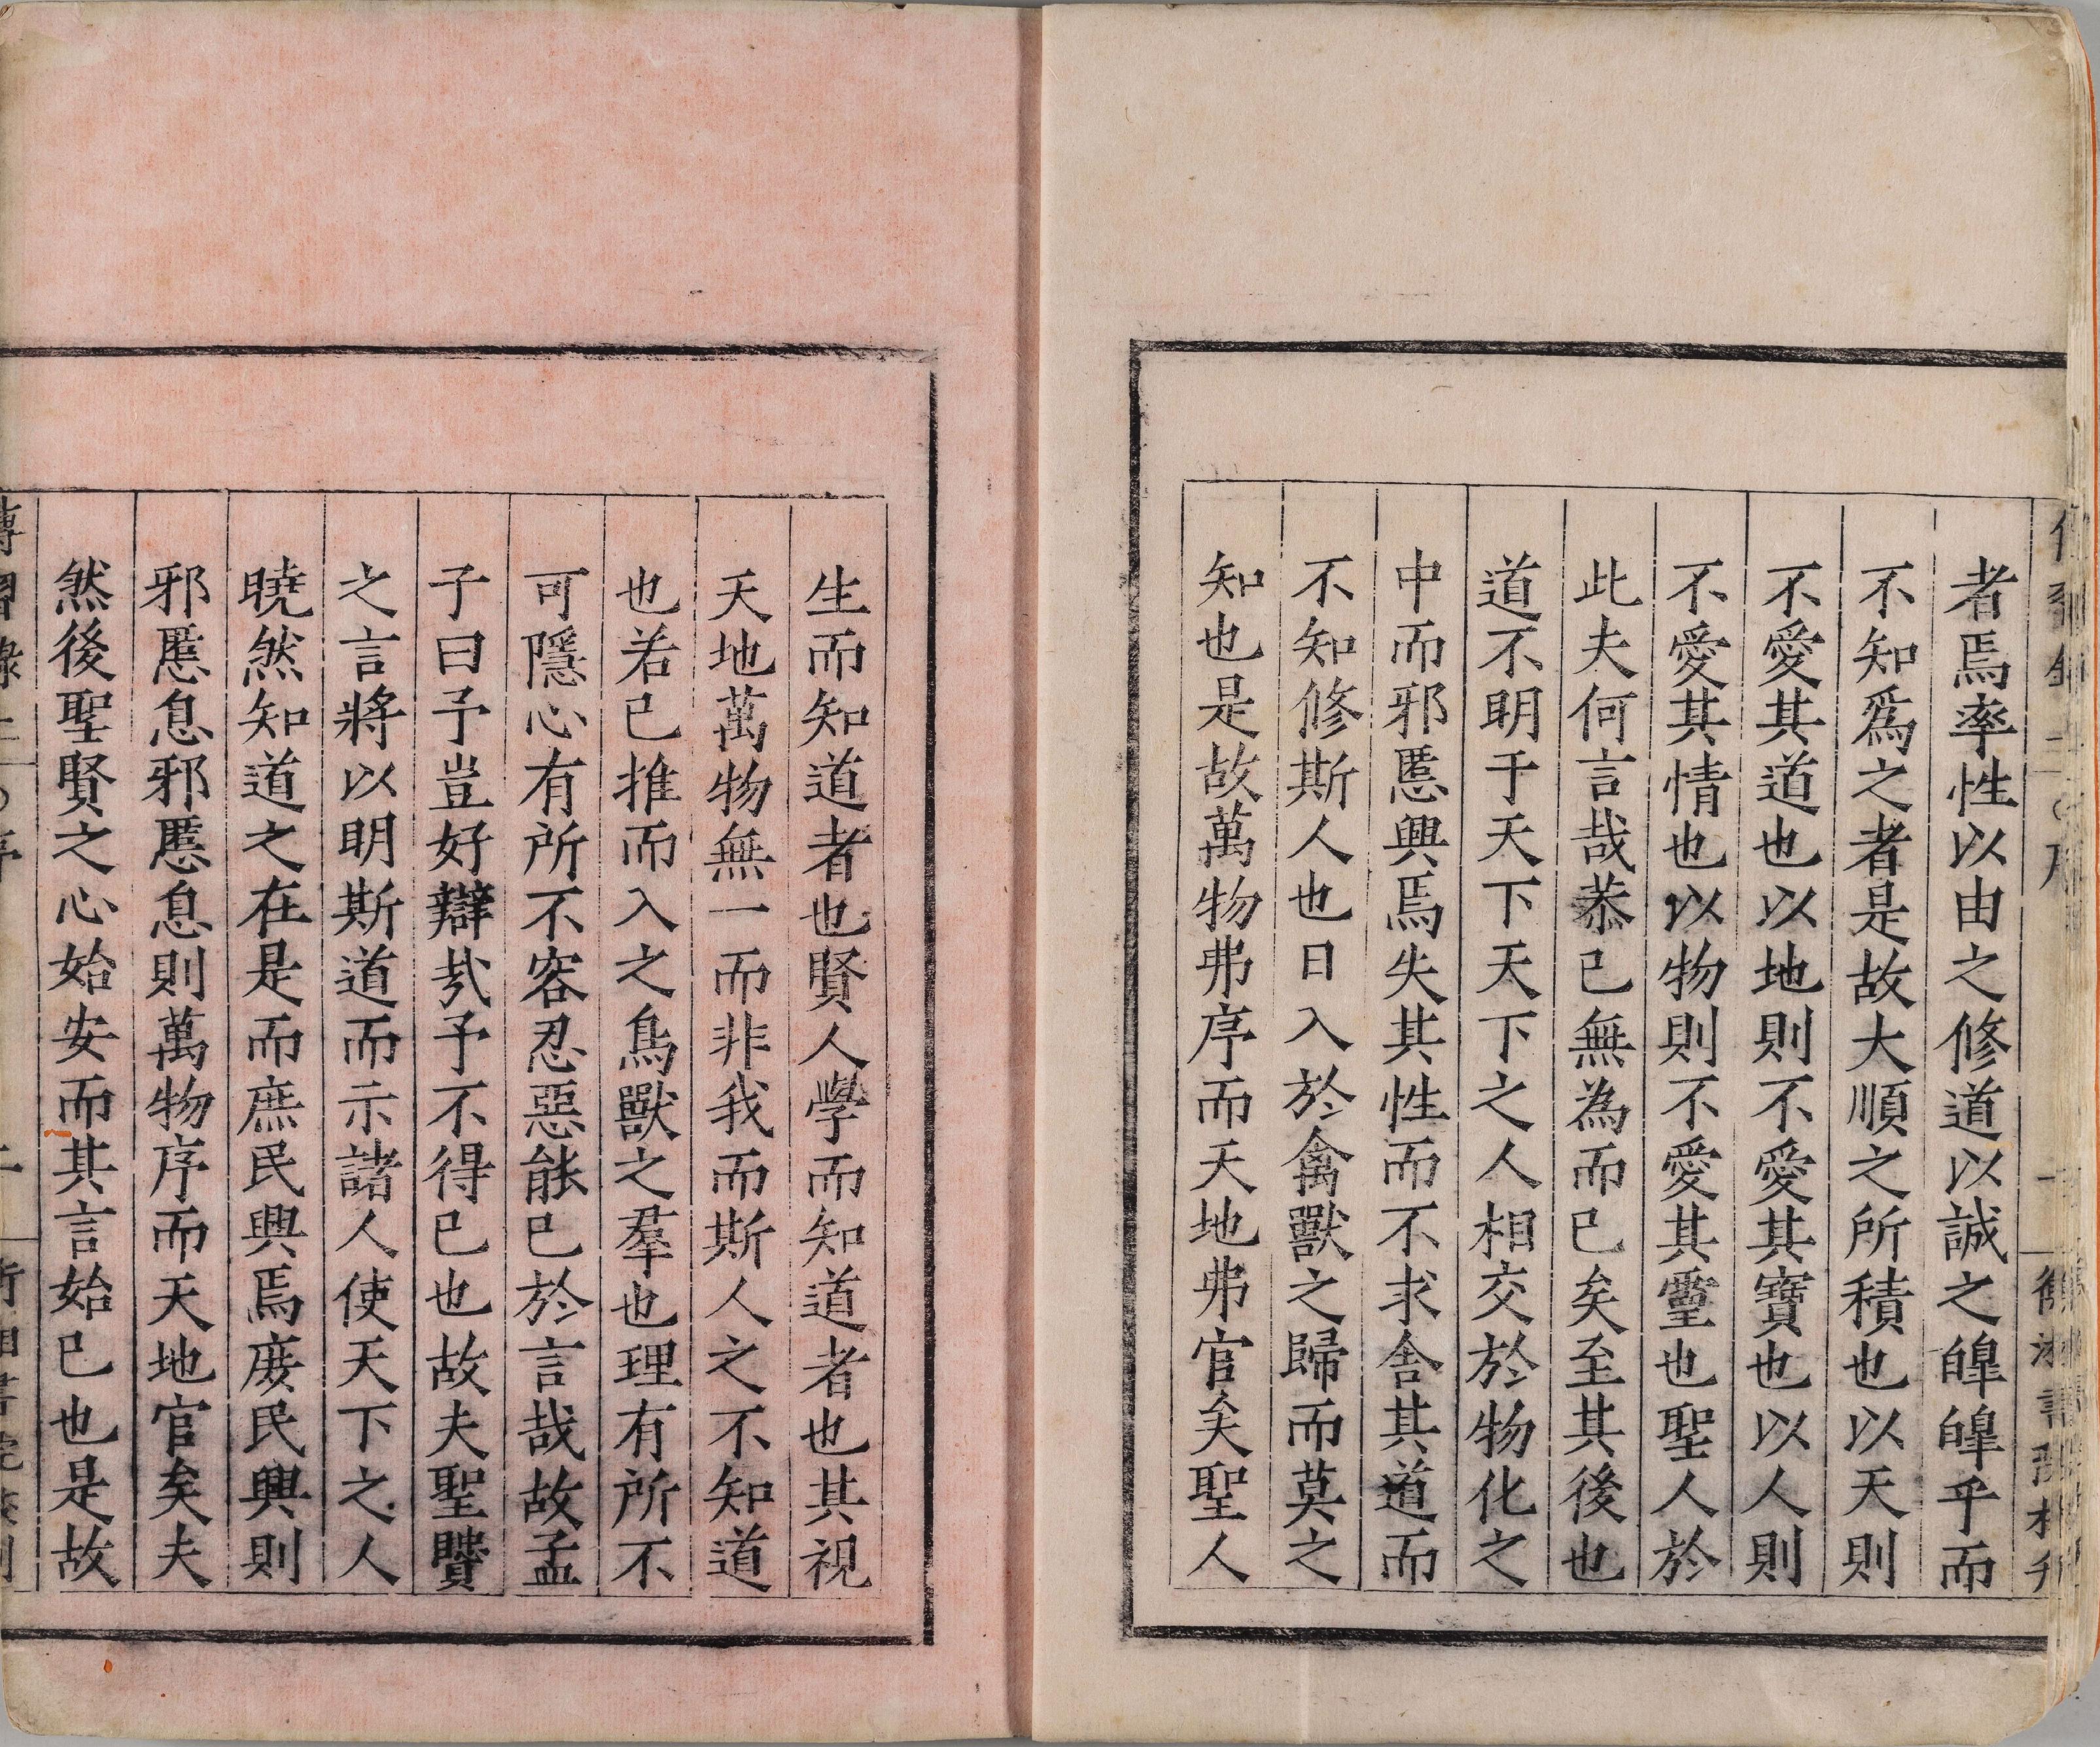 者焉率性以由之修道以誠之皥皥乎而
不知爲之者是故大順之所積也以天則
不愛其道也以地則不愛其寶也以人則
不愛其情也以物則不愛其靈也聖人於
此夫何言哉恭已無為而已矣至其後也
道不明于天下天下之人相交於物化之
中而邪慝興焉失其性而不求舍其道而
不知修斯人也日入於禽獸之歸而莫之
知也是故萬物弗序而天地弗官矣聖人
生而知道者也賢人學而知道者也其視
天地萬物無一而非我而斯人之不知道
也若已推而入之鳥獸之羣也理有所不
可隱心有所不容忍惡能已於言哉故孟
子曰予豈好辯㢤予不得已也故夫聖賢
之言將以明斯道而示諸人使天下之人
曉然知道之在是而庶民興焉庶民興則
邪慝息邪慝息則萬物序而天地官矣夫
然後聖賢之心始安而其言始已也是故